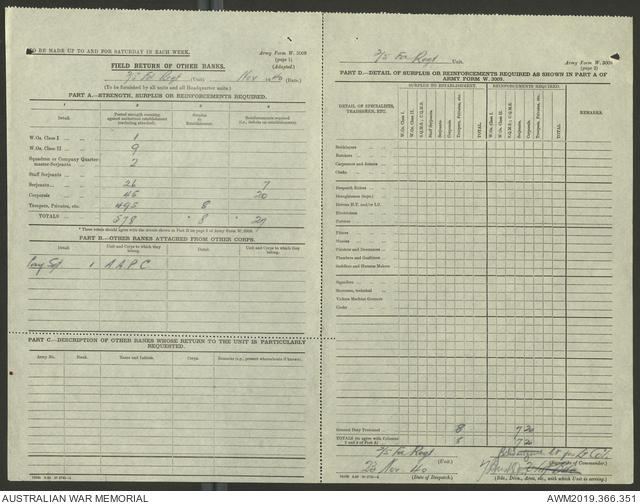 TO BE MADE UP TO AND FOR SATURDAY IN EACH WEEK.
Army Form W. 3009
(page 1)
(Adapted.)
FIELD RETURN OF OTHER RANKS.
2/5 Fd Regt (Unit) Nov 1940 (Date.)
(To be furnished by all units and all Headquarter units.)
PART A.—STRENGTH, SURPLUS OR REINFORCEMENTS REQUIRED.
1 2 3 4
Detail. Posted strength counting against authorized establishment (excluding attached). Surplus to Establishment. Reinforcements required (i.e., deficits on establishment).
W.Os. Class I 1
W.Os. Class II 9
Squadron or Company Quarter-
master-Serjeants 2
Staff Serjeants
Serjeants 26 7
Corporals 45 20
Troopers, Privates, etc. 495 8
TOTALS 578 * 8 * 27
* These totals should agree with the details shown in Part D on page 2 of Army Form W. 3009.
PART B.—OTHER RANKS ATTACHED FROM OTHER CORPS.
Detail. Unit and Corps to which they belong. Detail. Unit and Corps to which they belong.
1 A A P C
PART C.—DESCRIPTION OF OTHER RANKS WHOSE RETURN TO THE UNIT IS PARTICULARLY
REQUESTED.
Army No. Rank. Name and Initials. Corps. Remarks (e.g., present whereabouts if known).
2/5 Fd Regt Unit.
Army Form W. 3009
(page 2)
PART D.—DETAIL OF SURPLUS OR REINFORCEMENTS REQUIRED AS SHOWN IN PART A OF
ARMY FORM W. 3009.
DETAIL OF SPECIALISTS, TRADESMEN, ETC. SURPLUS TO ESTABLISHMENT. REINFORCEMENTS REQUIRED. REMARKS.
W.Os. Class I. W.Os. Class II. S.Q.M.S.; C.Q.M.S. Staff Serjeants. Serjeants. Corporals. Troopers, Privates, etc. TOTAL
W.Os. Class I. W.Os. Class II. S.Q.M.S.; C.Q.M.S. Serjeants. Corporals. Troopers, Privates, etc. TOTAL.
Bricklayers
Butchers
Carpenters and Joiners
Clerks
Despatch Riders
Draughtsmen (topo.)
Drivers H.T. and/or I.C.
Electricians
Farriers
Fitters
Masons
Painters and Decorators
Plumbers and Gasfitters
Saddlers and Harness Makers
Signallers
Storemen, technical
Vickers Machine Gunners
Cooks
General Duty Personnel 8 7 20
TOTALS (to agree with Columns
3 and 4 of Part A) 8 7 20
2/5 Fd Regt (Unit.)
(Signature of Commander.)
23 Nov 40
(Date of Despatch.)
(Bde., Divn., Area, etc., with which Unit is serving.)
AUSTRALIAN WAR MEMORIAL
AWM2019.366.351